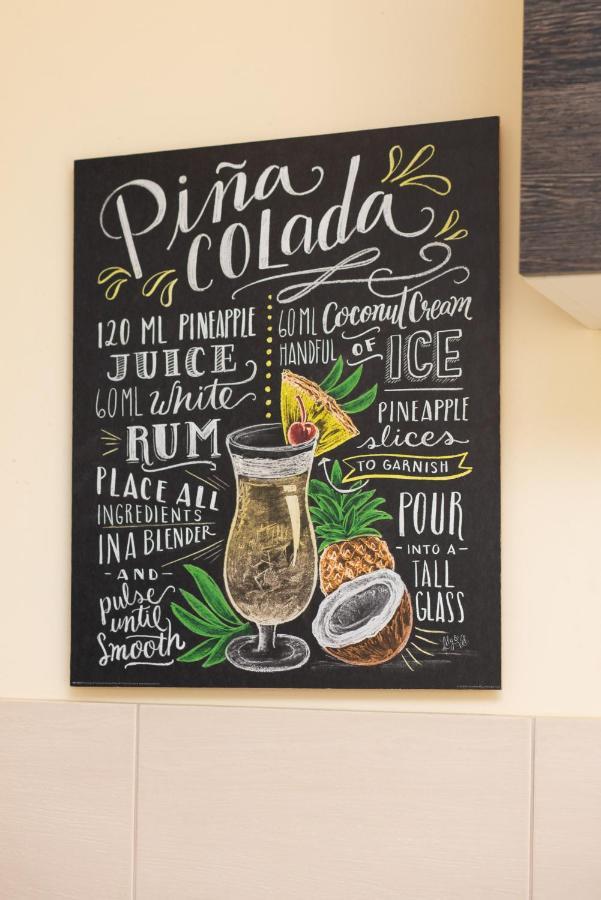 Piña
COLada
120 ML PINEAPPLE
JUICE
60ML White
RUM
PLACE ALL
INGREDIENTS
IN A BLENDER
- AND -
pulse
until
Smooth
60ML Coconut Cream
HANDFUL OF ICE
PINEAPPLE
slices
TO GARNISH
POUR
- INTO A -
TALL
GLASS